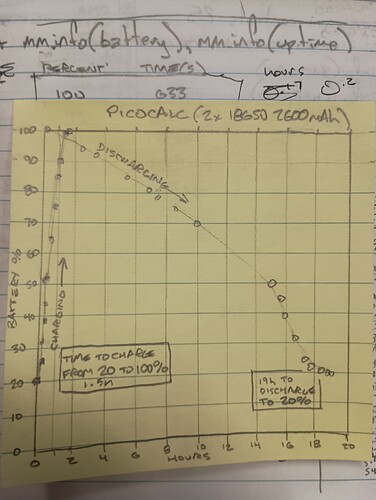 mm.info(battery), mm.info(uptime)
PERCENT TIME(S) HOURS
100 633 0.2
PICOCALC (2x 18650 2600mAh)
100
90
80
70
60
50
40
30
20
10
0
BATTERY %
CHARGING
DISCHARGING
TIME TO CHARGE
FROM 20 TO 100%
1.5h
19h TO
DISCHARGE
TO 20%
0 2 4 6 8 10 12 14 16 18 20
HOURS